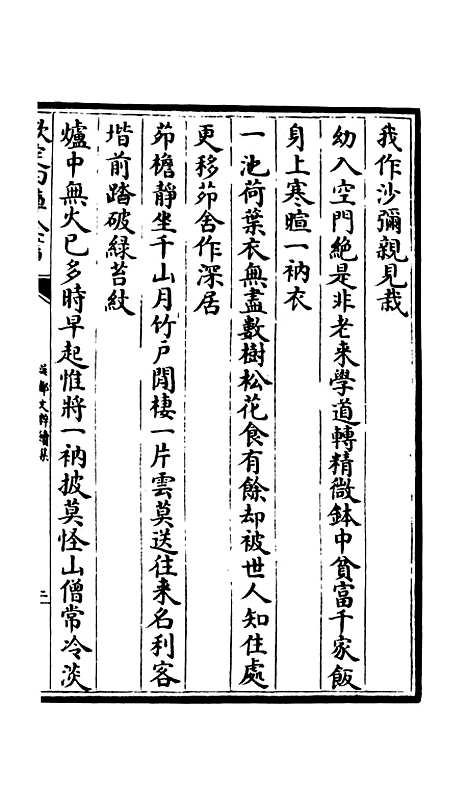 我作沙彌親見哉
幼入空門絶是非老來學道轉精微鉢中貧富千家飯
身上寒暄一衲衣
一池荷葉衣無盡數樹松花食有餘却被世人知住處
更移茆舍作深居
茆檐静坐千山月竹户閒棲一片雲莫送往来名利客
堦前踏破緑苔紋
爐中無火已多時早起惟將一衲披莫怪山僧常冷淡
文粹續集
二